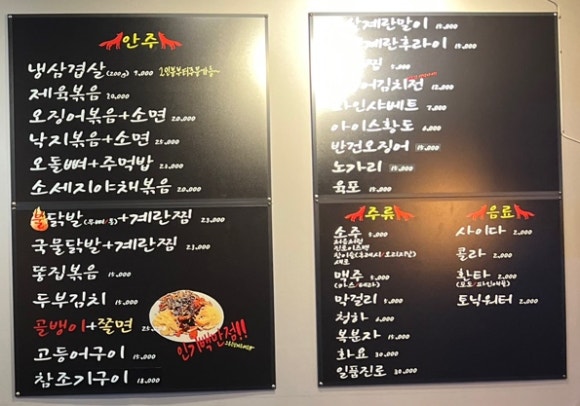 안주
냉삼겹살(200g) 9,000
제육볶음 20,000
오징어볶음+소면 20,000
낙지볶음+소면 25,000
오돌뼈+주먹밥
소세지야채볶음 20,000
불닭발 +계란찜 23,000
국물닭발+계란찜 23,000
똥집볶음 15,000
두부김치 15,000
골뱅이+쫄면 25,000
인기백만점!!
고등어구이 15,000
참조기구이 18,000
계란말이 15,000
계란후라이
찜
김치전
샤베트 7,000
아이스황도 6,000
반건오징어 15,000
노가리 15,000
육포 15,000
주류
소주 5,000
처음처럼
진로이즈백
새로
맥주 5,000
막걸리 5,000
청하 6,000
복분자 15,000
화요 30,000
일품진로 30,000
음료
사이다 2,000
콜라 2,000
환타 2,000
토닉워터 2,000